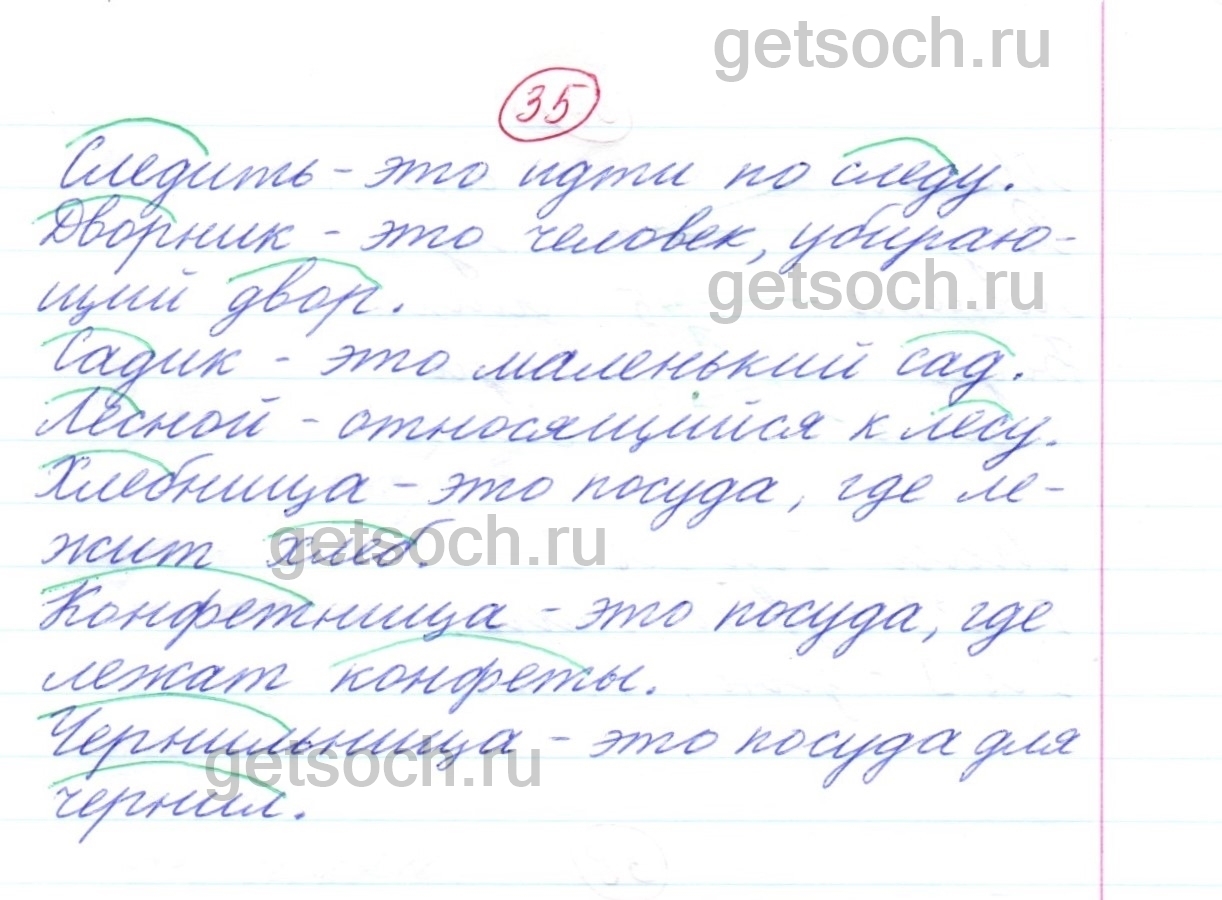 getsoch.ru
35
Следить - это идти по следу.
Дворник - это человек, убираю-
getsoch.ru
щий двор.
Садик - это маленький сад.
Лесной - относящийся к лесу.
Хлебница - это посуда, где ле-
жит хлеб.
getsoch.ru
Конфетница - это посуда, где
лежат конфеты.
Чернильница - это посуда для
getsoch.ru
чернил.